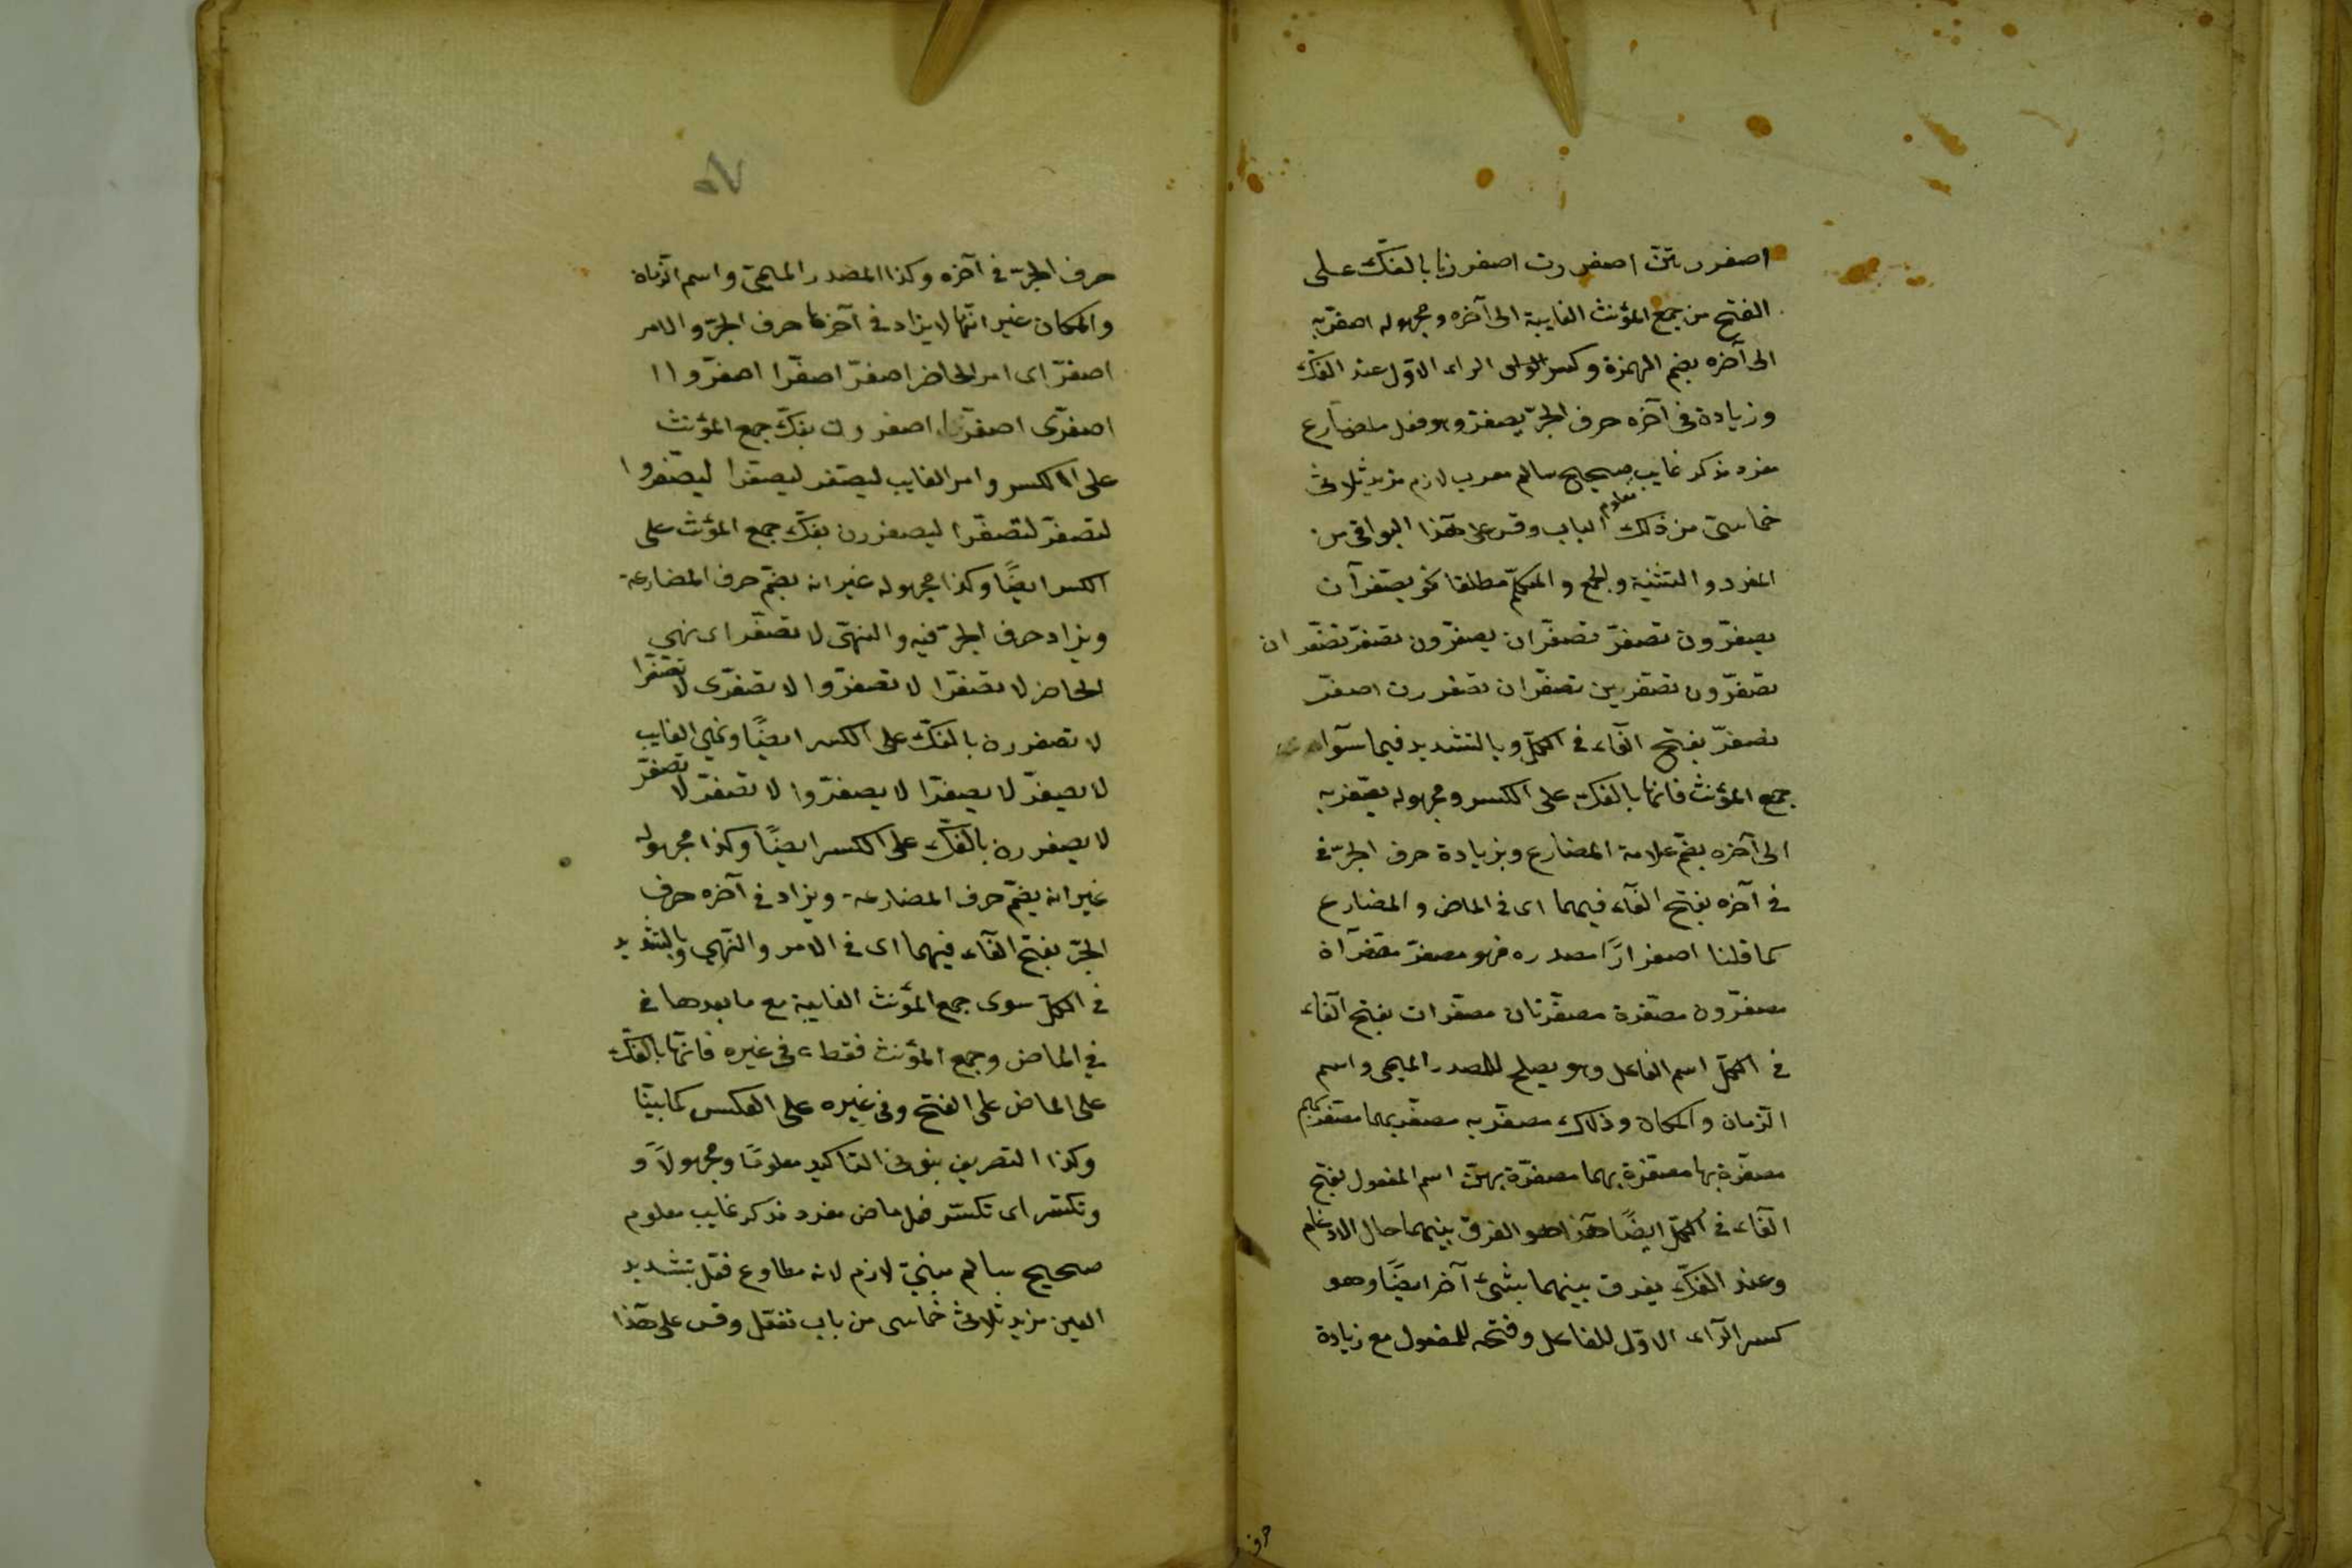 اصفررتنّ اصفررت اصفررنا بالفكّ على
الفتح من جمع المؤنث الغايبة الى آخره ومجهوله اصفرّ به
الى آخره بضم الهمزة وكسر الراء الاوّل عند الفكّ
وزيادة فى آخره حرف الجرّ يصفرّ وهو فعل مضارع
مفرد مذكر غايب صحيح سالم معرب لازم مزيد ثلاثى
خماسىّ من ذلك الباب معلوم وقس على هذا البواقى من
المفرد والتثنية والجمع والمتكلّم مطلقا نحو يصفرّان
يصفرّون تصفرّ تصفرّان يصفرّون تصفرّ تصفرّان
تصفرّون تصفرّين تصفرّان تصفررن اصفرّ
نصفرّ بفتح الفآء فى الكلّ وبالتشديد فيما سوآ
جمع المؤنث فانّها بالفكّ على الكسر ومجهوله يصفرّ به
الى آخره بضم علامة المضارع وبزيادة حرف الجرّ فى
فى آخره بفتح الفآء فيهما اى فى الماض والمضارع
كما قلنا اصفرارًا مصدره فهو مصفرّ مصفرّان
مصفرّون مصفرّة مصفرّتان مصفرّات بفتح الفآء
فى الكلّ اسم الفاعل وهو يصلح للمصدر الميمى واسم
الزّمان والمكان وذلك مصفرّ به مصفرّ بهما مصفرّ بهم
مصفرّة بها مصفرّة بهما مصفرّة بهنّ اسم المفعول بفتح
الفآء فى الكلّ ايضًا هذا هو الفرق بينهما حال الادغام
وعند الفكّ يفرق بينهما بشىء آخر ايضًا وهو
كسر الرّآء الاوّل للفاعل وفتحه للمفعول مع زيادة
حرف
حرف الجرّ فى آخره وكذا المصدر الميمىّ واسم الزّمان
والمكان غير انّها لا يزاد فى آخرها حرف الجرّ والامر
اصفرّ اى امر الحاضر اصفرّ اصفرّا اصفرّوا
اصفرّى اصفرّا اصفررن بفكّ جمع المؤنث
على الكسر وامر الغايب ليصفر ليصفرّا ليصفرّوا
لتصفرّ لتصفرّا ليصفررن بفكّ جمع المؤنث على
الكسر ايضًا وكذا مجهوله غير انه يضمّ حرف المضارعة
ويزاد حرف الجرّ فيه والنهىّ لا تصفرّ اى نهى
الحاضر لا تصفرّا لا تصفرّوا لا تصفرّى لا تصفرّا
لا تصفررن بالفكّ على الكسر ايضًا ونهى الغايب
لا يصفرّ لا يصفرّا لا يصفرّوا لا تصفرّ لا تصفرّ
لا يصفررن بالفكّ على الكسر ايضًا وكذا مجهوله
غير انه يضمّ حرف المضارعة ويزاد فى آخره حرف
الجرّ بفتح الفآء فيهما اى فى الامر والنّهى وبالتشديد
فى الكلّ سوى جمع المؤنث الغايبة مع ما بعدها فى
فى الماض وجمع المؤنث فقط فى غيره فانّها بالفكّ
على الماض على الفتح وفى غيره على العكس كما بيّنا
وكذا التصريف بنونى التاكيد معلومًا ومجهولًا و
وتكسّر اى تكسّر فعل ماض مفرد مذكر غايب معلوم
صحيح سالم مبنىّ لازم لانه مطاوع فعّل بتشديد
العين مزيد ثلاثى خماسى من باب تفعّل وقس على هذا